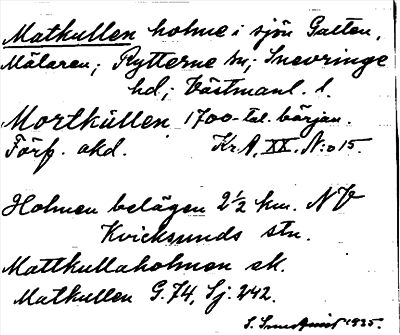 Matkullen holme i sjön Galten,
Mälaren; Rytterne sn; Snevringe
hd; Västmanl. l.
Mortküllen 1700-tal. börjän.
Förf. okd. Kr. A. XX. N:o 15.
Holmen belägen 2½ km. NV
Kvicksunds stn.
Mattkullaholmen ek.
Matkullen G. 74, Sj. 242.
S. 1925.